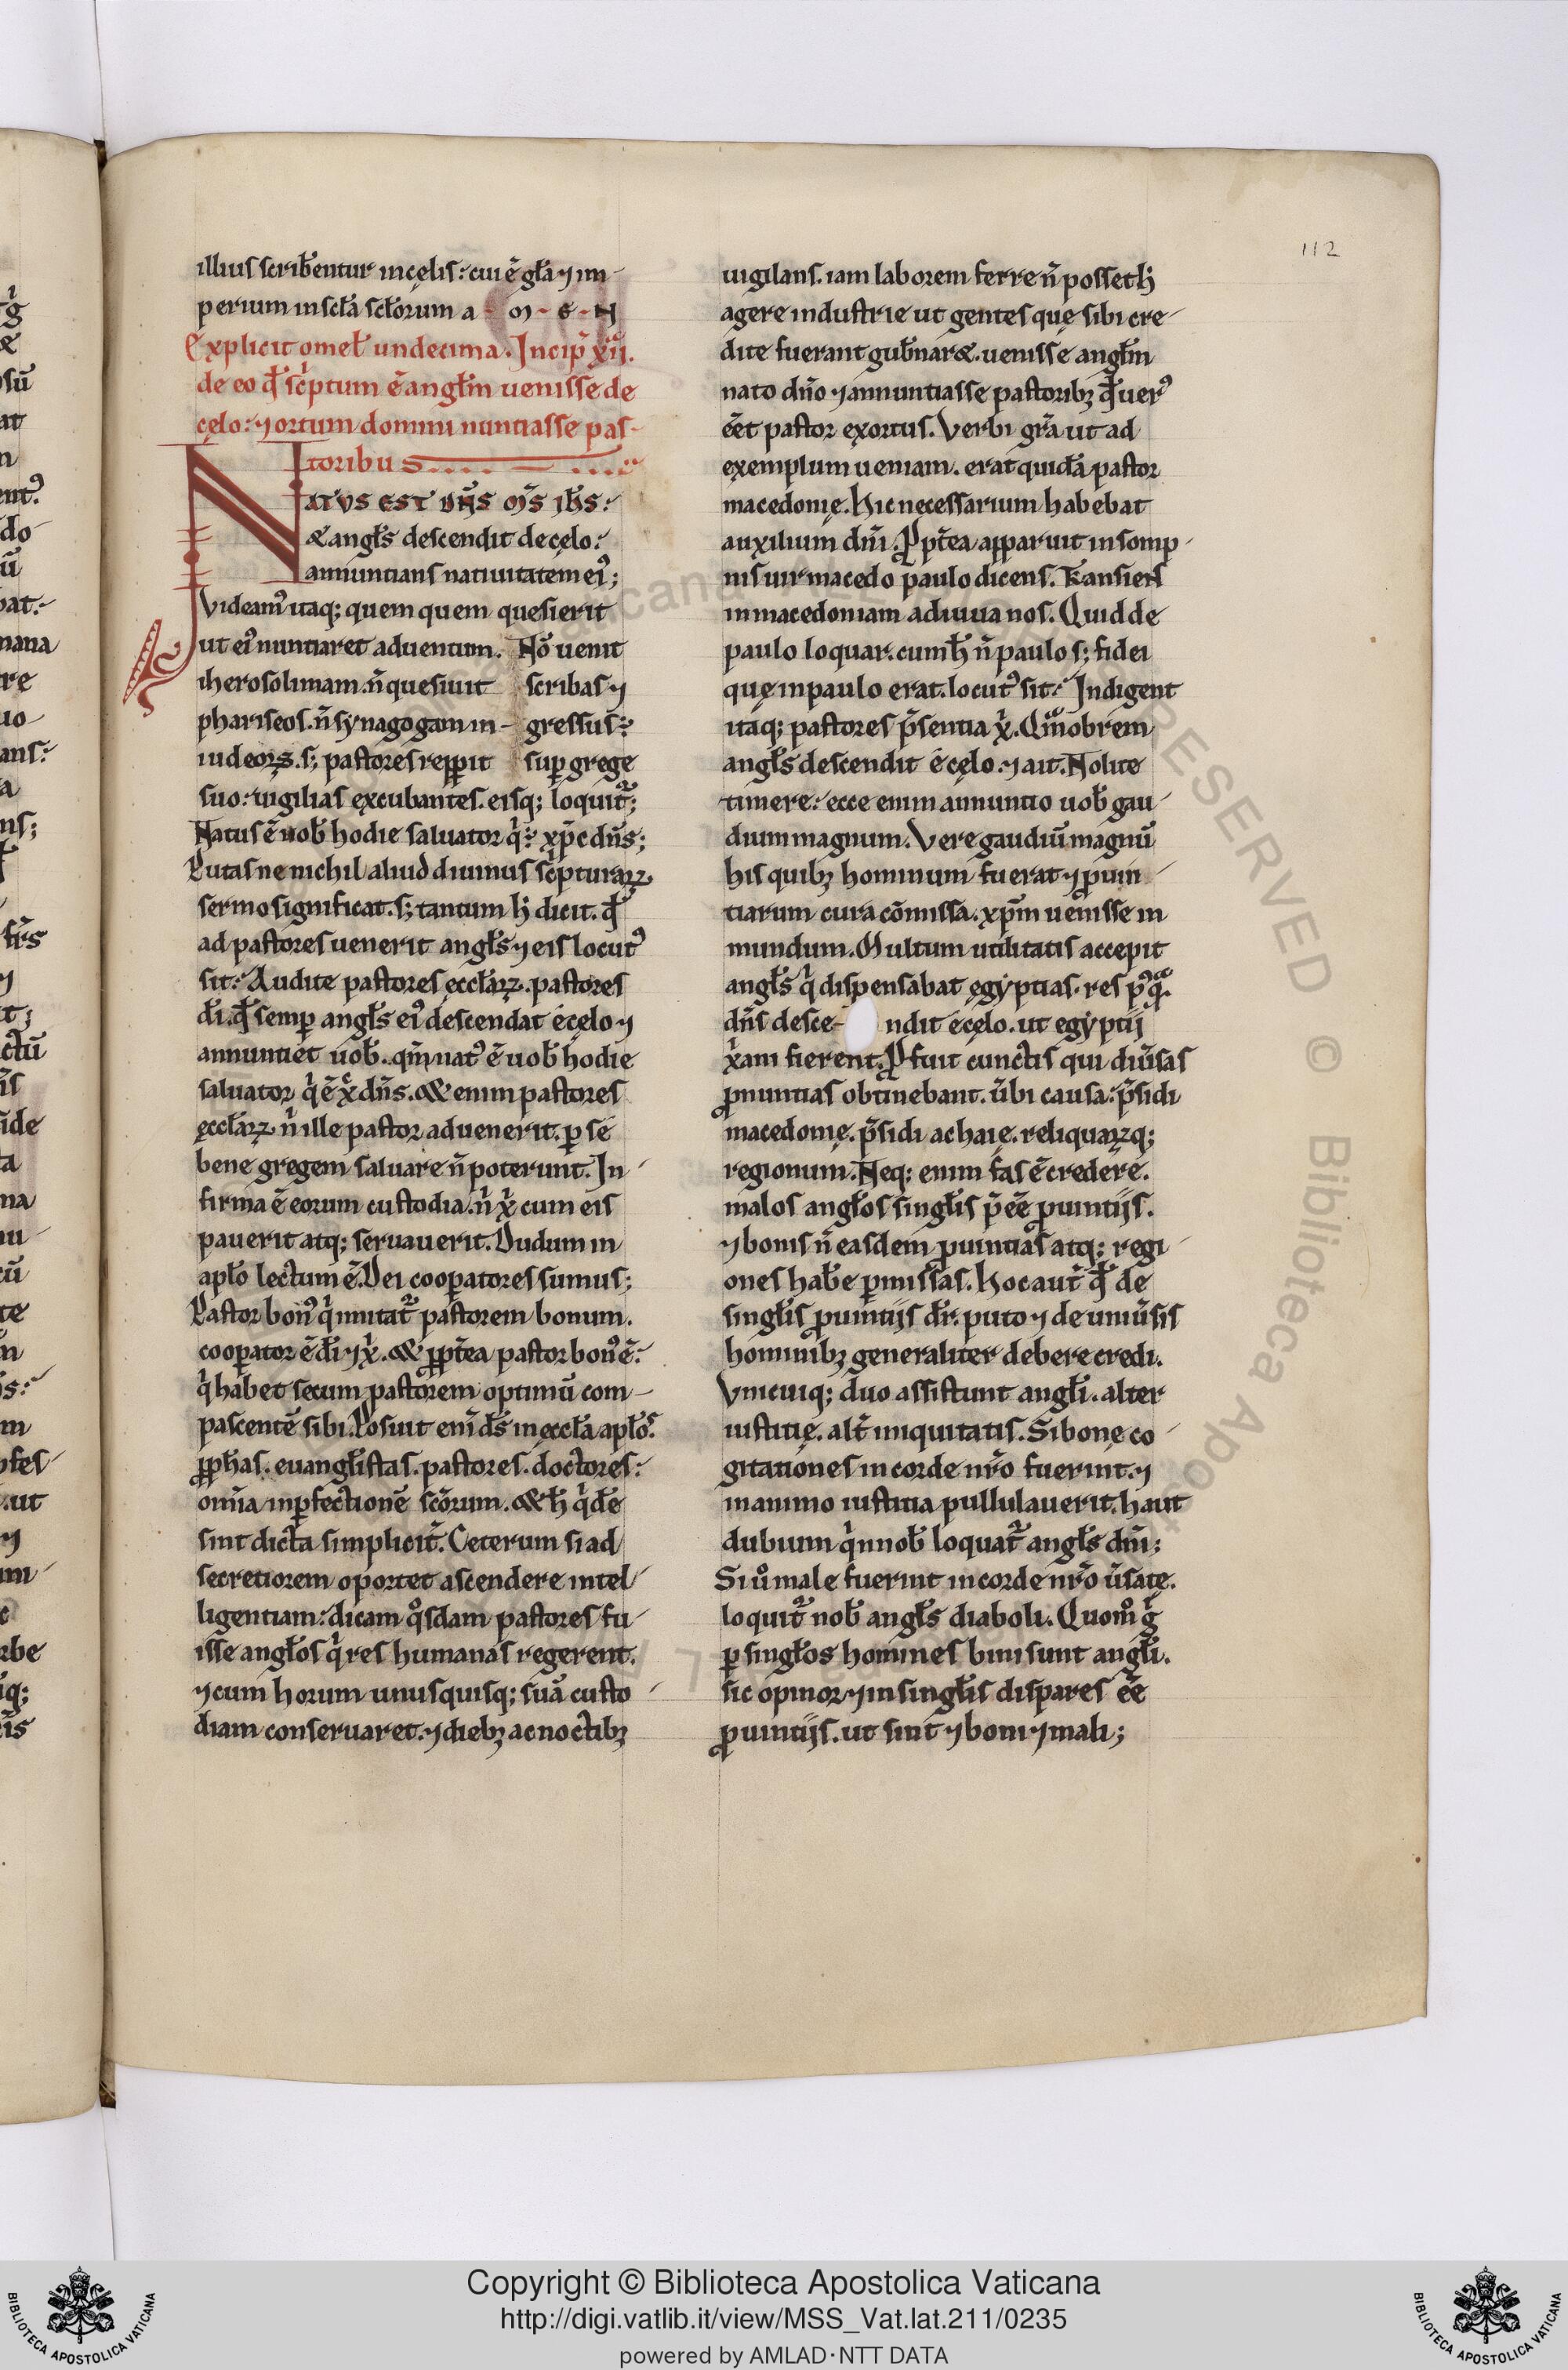 112
illius scribentur incęlis: cui ē̆ gl̃a ⁊ im-
perium in scl̃a scl̃orum a - m - e - n
Explicit omel̃ undecima. Incip̃ xii.
de eo qđ scͥptum ē̆ angl̃m uenisse de
cęlo: ⁊ ortum domini nuntiasse pas-
toribus
NATVS EST DN̄S M̄S IH̄S:
& angl̃s descendit de cęlo:
annuntians natiuitatem eiꝰ;
Videamꝰ itaq; quem quem quesierit
ut eiꝰ nuntiaret aduentum. Nō uenit
iherosolimam. n̄ quesiuit scribas ⁊
phariseos. n̄ synagogam in- gressus:
iudeoꝝ. s; pastores repꝑit suꝑ grege
suo: uigilias excubantes. eisq; loquit᷑;
Natus ē̆ uob̃ hodie saluator qͥ: xp̄c dn̄s;
Putasne nichil aliud diuinus scͥpturaꝝ
sermo significat. s; tantum h̓ dicit. qđ
ad pastores uenerit angl̃s ⁊ eis locutꝰ
sit: Audite pastores ęccl̃aꝝ. pastores
dī. qđ semꝑ angl̃s eiꝰ descendat é cęlo ⁊
annuntiet uob̃. qm̄ natꝰ ē̆ uob̃ hodie
saluator qͥ ē̆ xͨ dn̄s. & enim pastores
ęccl̃aꝝ nͥ ille pastor aduenerit. ꝑ se
bene gregem saluare n̄ poterunt. In-
firma ē̆ eorum custodia. nͥ xͨ cum eis
pauerit atq; seruauerit. Dudum in
apl̃o lectum ē̆. Dei cooꝑatores sumus;
Pastor bonꝰ qͥ imitat᷑ pastorem bonum.
cooꝑator ē̆ dī ⁊ xͥ. & ꝓpt̃ea pastor bonꝰ ē̆:
qͥ habet secum pastorem optimū com-
pascentē sibi. Posuit eni̅ ds̄ in ęccl̃a apl̃os.
ꝓphas. euangl̃istas. pastores. doctores:
omīa in ꝑfectionē scōrum. & h̓ qͥdē
sint dicta simplicit̃. Ceterum si ad
secretiorem oportet ascendere intel-
ligentiam: dicam qͦsdam pastores fu-
isse angl̃os qͥ res humanas regerent.
⁊ cum horum unusquisq; suā custo-
diam conseruaret. ⁊ dieb; ac noctib;
uigilans. iam laborem ferre n̄ posset h̓
agere industrie ut gentes quę sibi cre-
dite fuerant gub̃nar&. uenisse angl̃m
nato dn̄o ⁊ annuntiasse pastorib; qđ uerꝰ
ēet pastor exortus. Verbi gr̃a ut ad
exemplum ueniam. erat quidā pastor
macedonię. Hic necessarium habebat
auxilium dn̄i. Ꝓpt̃ea apparuit in somp-
nis uir macedo paulo dicens. Transiens
in macedoniam adiuua nos. Quid de
paulo loquar. cum h̓ n̄ paulo s; fidei
quę in paulo erat. locutꝰ sit: Indigent
itaq; pastores p̄sentia xͥ. Qm̄obrem
angl̃s descendit é cęlo. ⁊ ait. Nolite
timere: ecce enim annuntio uob̃ gau-
dium magnum. Vere gaudiū magnū
his quib; hominum fuerat ⁊ ꝓuin-
tiarum cura cōmissa. xp̄m uenisse in
mundum. Multum utilitatis accepit
angl̃s qͥ dispensabat ęgyptias. res pꝰqͣ.
dn̄s desce- ndit é cęlo. ut egyptij
xͥani fierent. Ꝓfuit cunctis qui diūsas
ꝓuintias obtinebant. ūbi causa: p̄sidi
macedonię. p̄sidi achaię. reliquaꝝq;
regionum. Neq; enim fas ē̆ credere.
malos angl̃os singl̃is p̄ēe ꝓuintijs.
⁊ bonis n̄ easdem ꝓuintias atq; regi-
ones habe ꝑmissas. Hoc aut̃ qđ de
singl̃is ꝓuintijs dr̄. puto ⁊ de uniūsis
hominib; generaliter debere credi.
Vnicuiq; duo assistunt angl̃i. alter
iustitię. alt̃ iniquitatis. Si bonę co-
gitationes in corde nr̄o fuerint. ⁊
in animo iustitia pullulauerit. haut
dubium qͥn nob̃ loquat᷑ angl̃s dn̄i;
Si uͦ male fuerint in corde nr̄o ūsatę.
loquit᷑ nob̃ angl̃s diaboli. Quom̊ gͥ
ꝑ singl̃os homines bini sunt angl̃i.
sic opinor ⁊ in singl̃is dispares ēe
ꝓuintijs. ut sint ⁊ boni ⁊ mali;
Copyright © Biblioteca Apostolica Vaticana
http://digi.vatlib.it/view/MSS_Vat.lat.211/0235
powered by AMLAD·NTT DATA
BIBLIOTECA APOSTOLICA VATICANA
BIBLIOTECA APOSTOLICA VATICANA